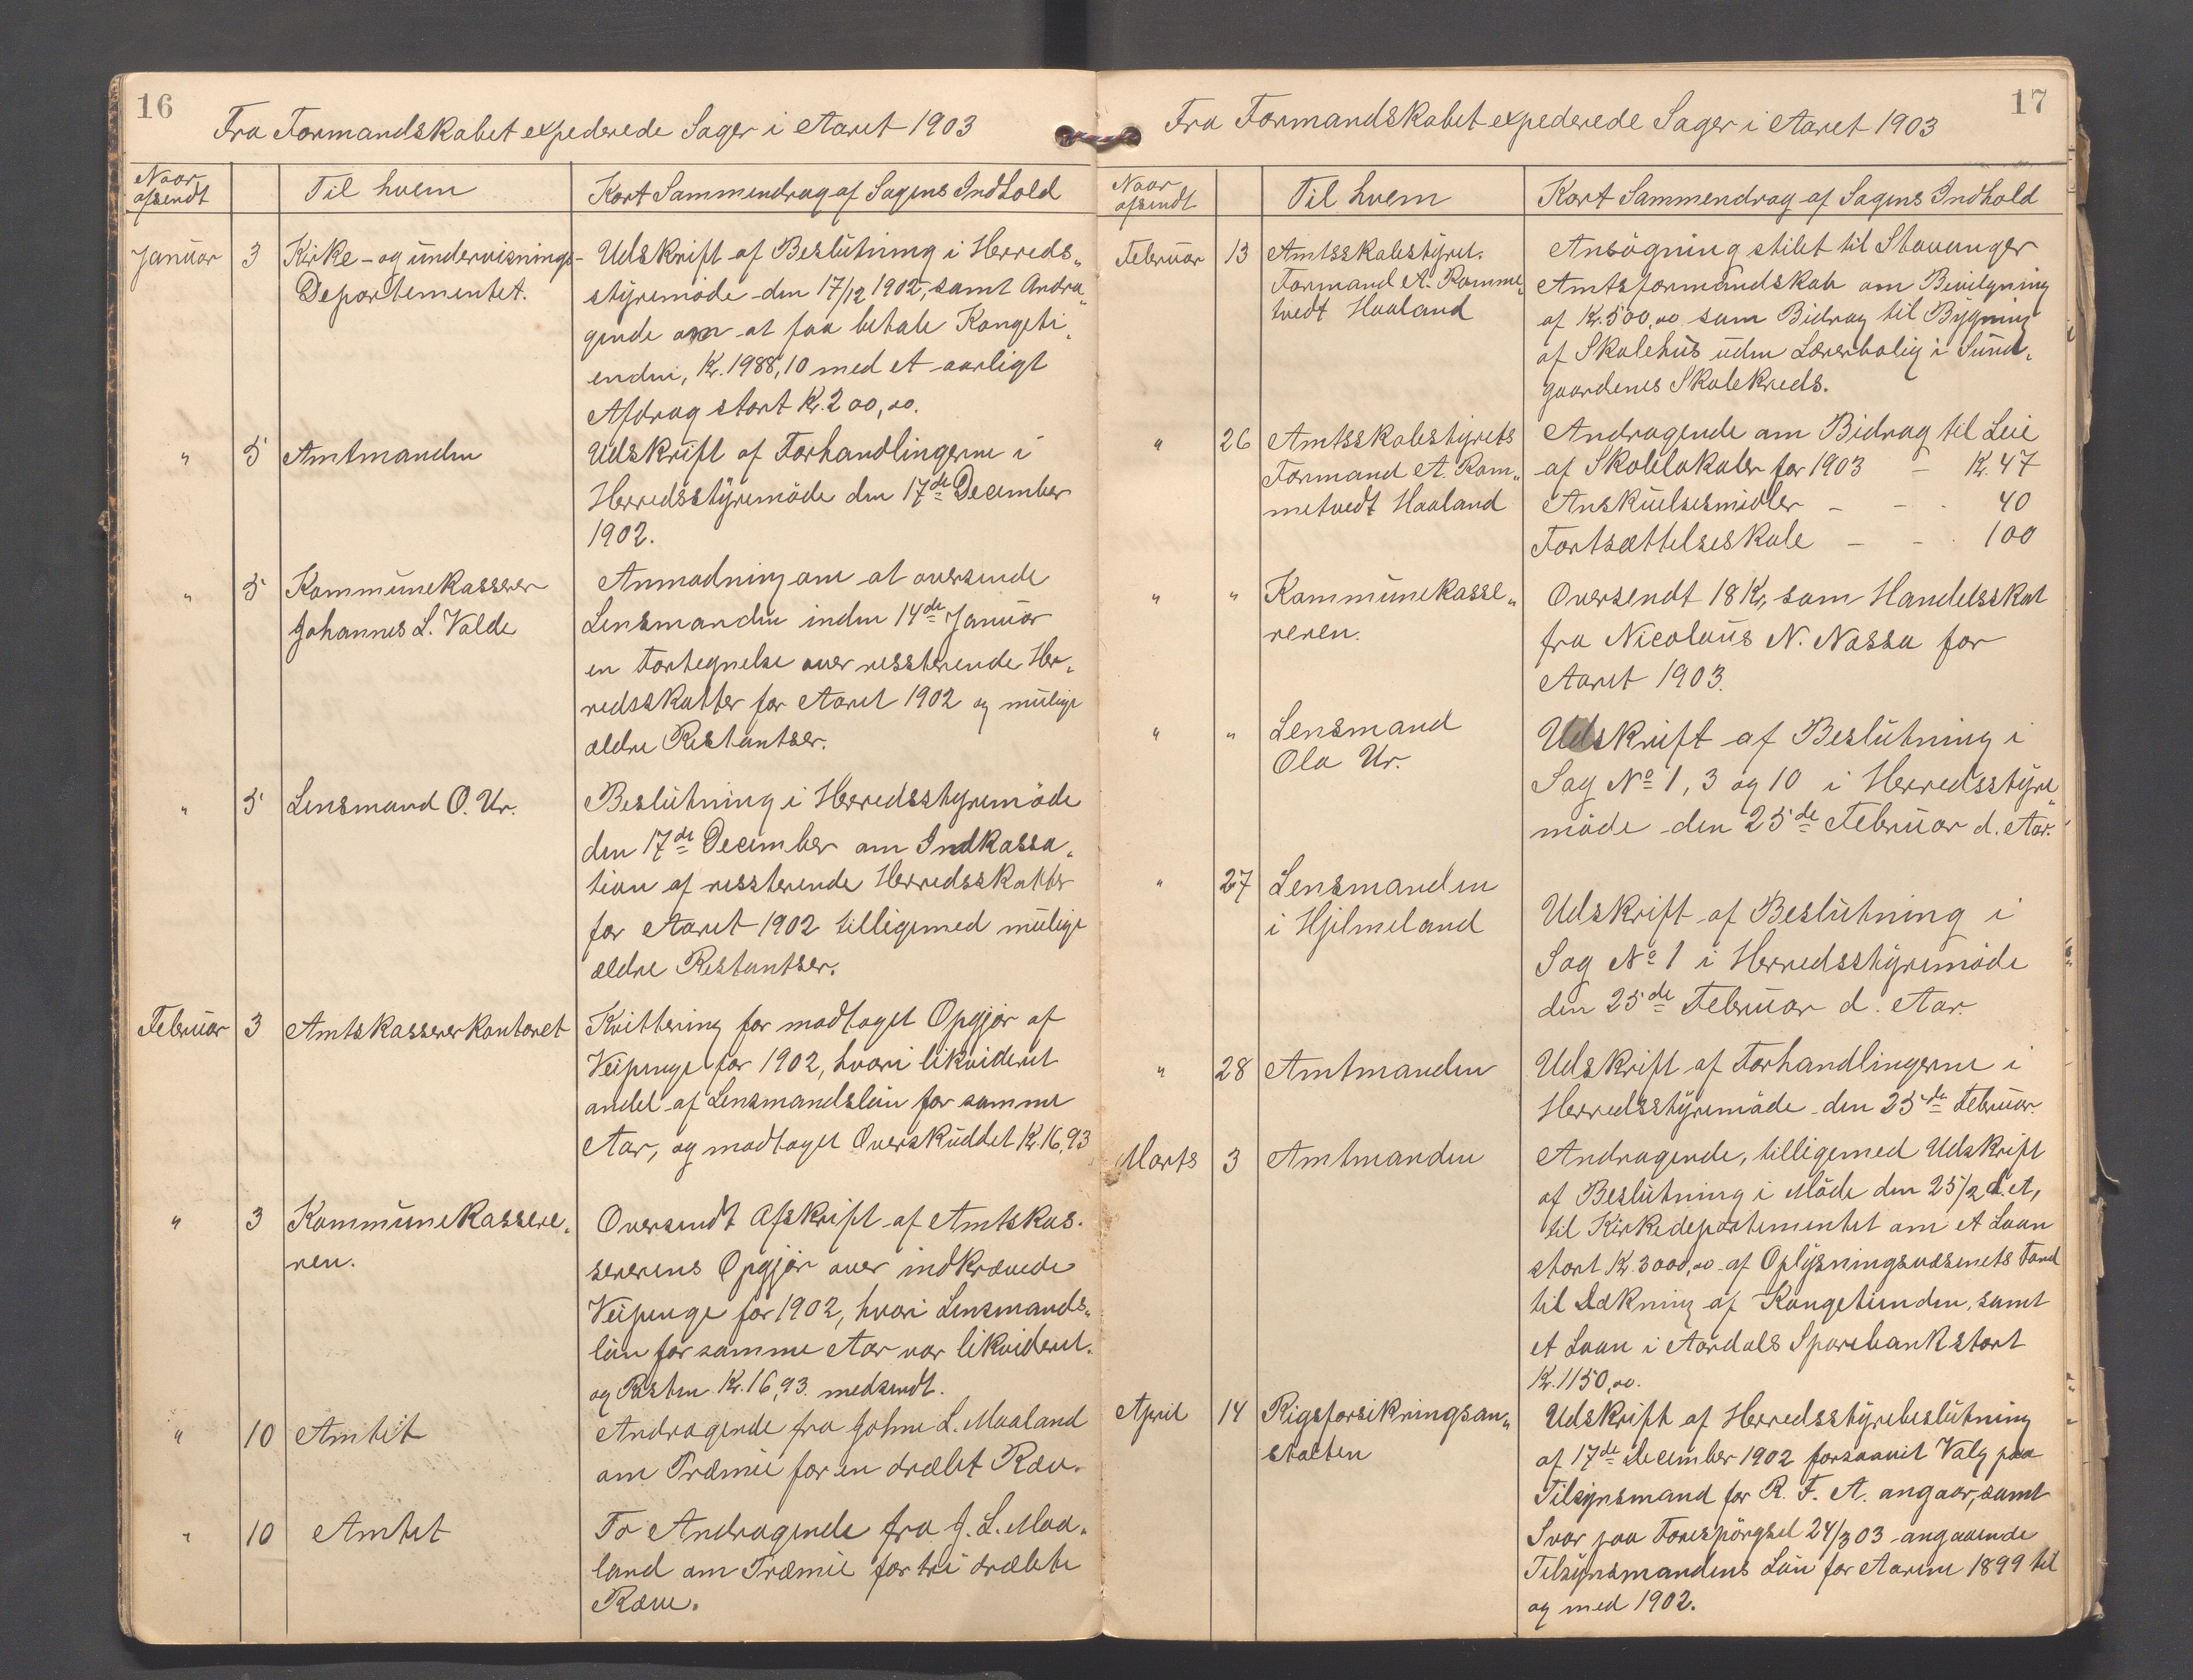 16
Fra Formandskabet expederede Sager i Aaret 1903
Naar afsendt
Til hvem
Kort Sammendrag af Sagens Indhold
Januar 3 Kirke- og undervisnings-
Departementet.
Udskrift af Beslutning i Herreds„
styremöde den 17/12 1902, samt Andra„
gende om at faa betale Kongeti„
enden, Kr. 1988,10 med et aarligt
Afdrag stort Kr. 200,00.
" 5 Amtmanden
Udskrift af Forhandlingerne i
Herredsstyremöde den 17de December
1902.
" 5 Kommunekasserer
Johannes L. Valde
Anmodning om at oversende
Lensmanden inden 14de Januar
en Fortegnelse over ressterende Her„
redsskatter for Aaret 1902 og mulige
ældre Restantser.
" 5 Lensmand O. Ur.
Beslutning i Herredsstyremöde
den 17de December om Indkassa„
tion af ressterende Herredsskatter
for Aaret 1902 tilligemed mulige
ældre Restantser.
Februar 3 Amtskassererkontoret
Kvittering for modtaget Opgjör af
Veipenge for 1902, hvori likvideret
andel af Lensmandslön for samme
Aar, og modtaget Overskuddet Kr. 16,93
" 3 Kommunekassere„
ren.
Oversendt Afskrift af Amtskas„
sererens Opgjör over indkrævede
Veipenge for 1902, hvori Lensmands„
lön for samme Aar var likvideret.
og Resten Kr. 16,93 medsendt.
" 10 Amtet
Andragende fra Johne L. Maaland
om Præmie for en dræbt Ræv.
" 10 Amtet
To Andragende fra J. L. Maa„
land om Præmie for tre dræbte
Ræve.
17
Fra Formandskabet expederede Sager i Aaret 1903
Naar afsendt
Til hvem
Kort Sammendrag af Sagens Indhold
Februar 13 Amtsskolestyret.
Formand A. Romme„
tvedt Haaland
Ansögning stilet til Stavanger
Amtsformandskab om Bevilgning
af Kr. 500,00 som Bidrag til Bygning
af Skolehus uden Lærerbolig i Sund„
gaardenes Skolekreds.
" 26 Amtsskolestyrets
Formand A. Rom„
metvedt Haaland
Andragende om Bidrag til Leie
af Skolelokaler for 1903 - Kr. 47
Anskuelsesmidler - - - 40
Fortsættelseskole - - - 100
" " Kommunekasse„
reren.
Oversendt 18 Kr, som Handelsskat
fra Nicolaus N. Nassa for
Aaret 1903.
" " Lensmand
Ola Ur.
Udskrift af Beslutning i
Sag No 1, 3 og 10 i Herredsstyre„
möde den 25de Februar d. Aar.
" 27 Lensmanden
i Hjelmeland
Udskrift af Beslutning i
Sag No 1 i Herredsstyremöde
den 25de Februar d. Aar.
" 28 Amtmanden
Udskrift af Forhandlingerne i
Herredsstyremöde den 25de Februar.
Marts 3 Amtmanden
Andragende, tilligemed Udskrift
af Beslutning i Möde den 25/2 d. A,
til Kirkedepartementet om et Laan
stort Kr. 3000,00 af Oplysningsvæsenets Fond
til Dækning af Kongetienden, samt
et Laan i Aardals Sparebank stort
Kr. 1150,00.
April 14 Rigsforsikringsan„
stalten
Udskrift af Herredsstyrebeslutning
af 17de December 1902 forsaavit Valg paa
Tilsynsmand for R. F. A. angaar, samt
Svar paa Forespörgsel 24/3 03 angaaende
Tilsynsmandens Lön for Aarene 1899 til
og med 1902.